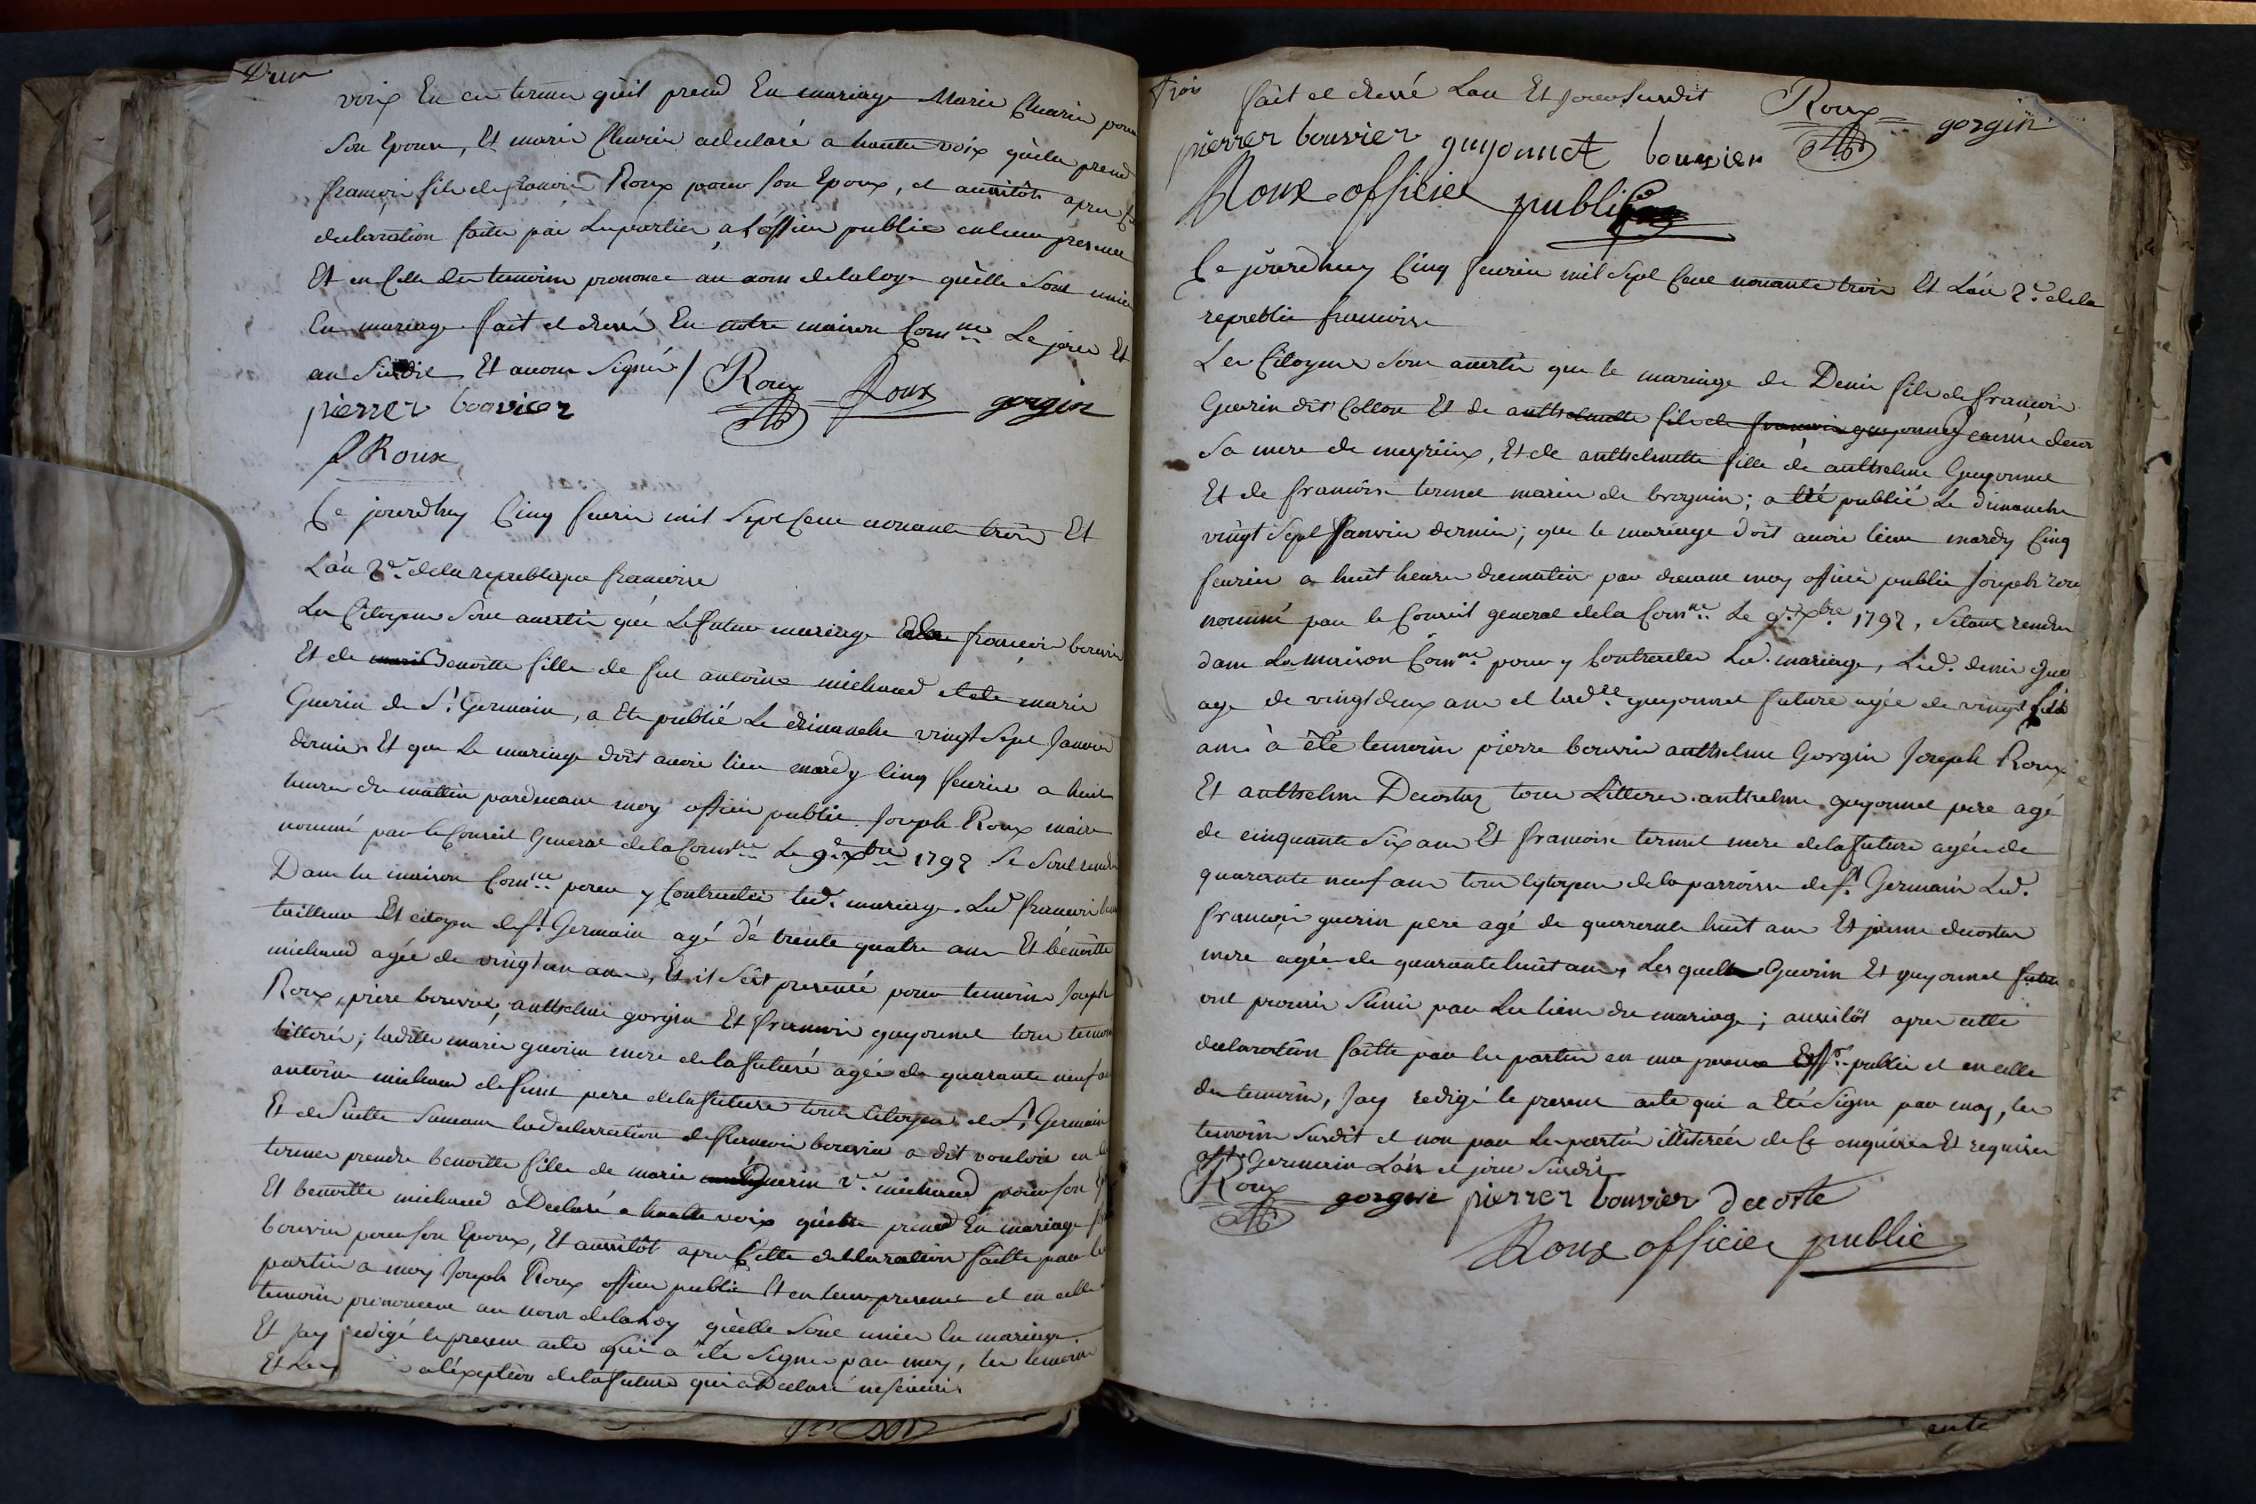 Deux
voix En ces termes qu'il prend En mariage Marie Cluarin pour
Son Epouse, Et marie Cluarin adeclaré a haute voix qu'elle prend
francois fils de francois Roux pour son Epoux, et aussitôt apres
declaration faitte par Les parties, a L'officier public en leur presence
Et en Celle des temoins prononcé au nom de la Loye qu'elle sont unies
En mariage fait et dressé En notre maison Com.ne Le jour Et
an Susdit Et avons Signé / Roux Roux gorgin
pierrer bouvier
P Roux
Ce jourdhuy Cinq fevrier mil Sept Cent nonante trois Et
L'an 2.e de la republique francoise
Les Citoyens Sont avertis que Le futur mariage francois bouvier
Et de Benoitte fille de feu antoine michaud et de marie
Guerin de S.t Germain, a Eté publié Le dimanche vingt Sept Janvier
dernier Et que Le mariage doit avoir lieu mardy Cinq fevrier a huit
heures du mattin pardevant moy officier public Joseph Roux maire
nommé par le Conseil General de la Com.ne Le 9.e Xbre 1792 Se Sont rendu
Dans la maison Com.ne pour y Contracter led. mariage. Led. francois
tailleur Et citoyen de S.t Germain agé dé trente quatre ans Et bénoitte
michaud agée de vingt un ans, Et il s'est presenté pour temoins Joseph
Roux, piere bouvier, anthelme gorgin Et francois guyonnet tous temoins
litterés; laditte marie guerin mere de la futuré agée de quarante neuf ans
antoine michaud defunt pere de la future tous Citoyens de S.t Germain
Et de Suitte la declarration de francois bouvier a dit vouloir en
termes prendre benoitte fille de marie guerin v.e michaud pour son
Et benoitte michaud a Declaré a haulte voix qu'elle prend En mariage
bouvier pour son Epoux, Et aussitôt apres Cette declaration faitte par les
parties a moy Joseph Roux officier public Et en leur presence et en celle
temoins prononcé au nom de la Loy qu'elle Sont unies En mariage
Et Jay redigé le present acte qui a eté Signé par moy, les temoins
Et Les a l'exeption de la future qui a Declaré ne scavoir
Trois
fait et dressé L'an Et Jour Susdit Roux gorgin
pierrer bouvier guyonnet bouvier
Roux officier public
Ce jourdhuy Cinq fevrier mil Sept Cent nonante trois Et L'an 2.e de la
republic francoisse
Les Citoyens Sont avertis que le mariage de Denis fils de francois
Guerin dit Collon Et de anthelmette fille de francois guyonnet
Sa mere de meyrieux, Et de anthelmette fille de anthelme Guyonnet
Et de francoise termet mariés de brognin; a été publié Le dimanche
vingt Sept Janvier dernier; que le mariage doit avoir lieu mardy Cinq
fevrier a huit heures du matin par devant moy officier public Joseph roux
nommé par le Conseil general de la Com.ne Le 9.e Xbre 1792, S'etant rendu
dans La maison Com.ne pour y Contracter Led. mariage, Led. denis
age de vingt deux ans et lad.te guyonnet future agée de vingt
ans à été temoins pierre bouvier anthelme Gorgin Joseph Roux
Et anthelme Decoster tous Litterés anthelme guyonnet pere agé
de cinquante Six ans Et francoise termet mere de la future agée de
quarante neuf ans tous Cytoyens de la parroisse de S.t Germain Led.
francois guerin pere agé de quarrente huit ans Et jeanne decoster
mere agée de quarante huit ans, Les quels Guerin Et guyonnet
ont promis S'unir par Les liens du mariage; aussitôt apres cette
declaration faitte par les parties en ma presence public et en celle
des temoins, Jay redigé le present acte qui a été Signé par moy, les
temoins Susdit et non par Les parties illiterées de Ce enquises Et requises
a S.t Germain L'an et jour Susdit
Roux gorgin pierrer bouvier decoste
Roux officier public